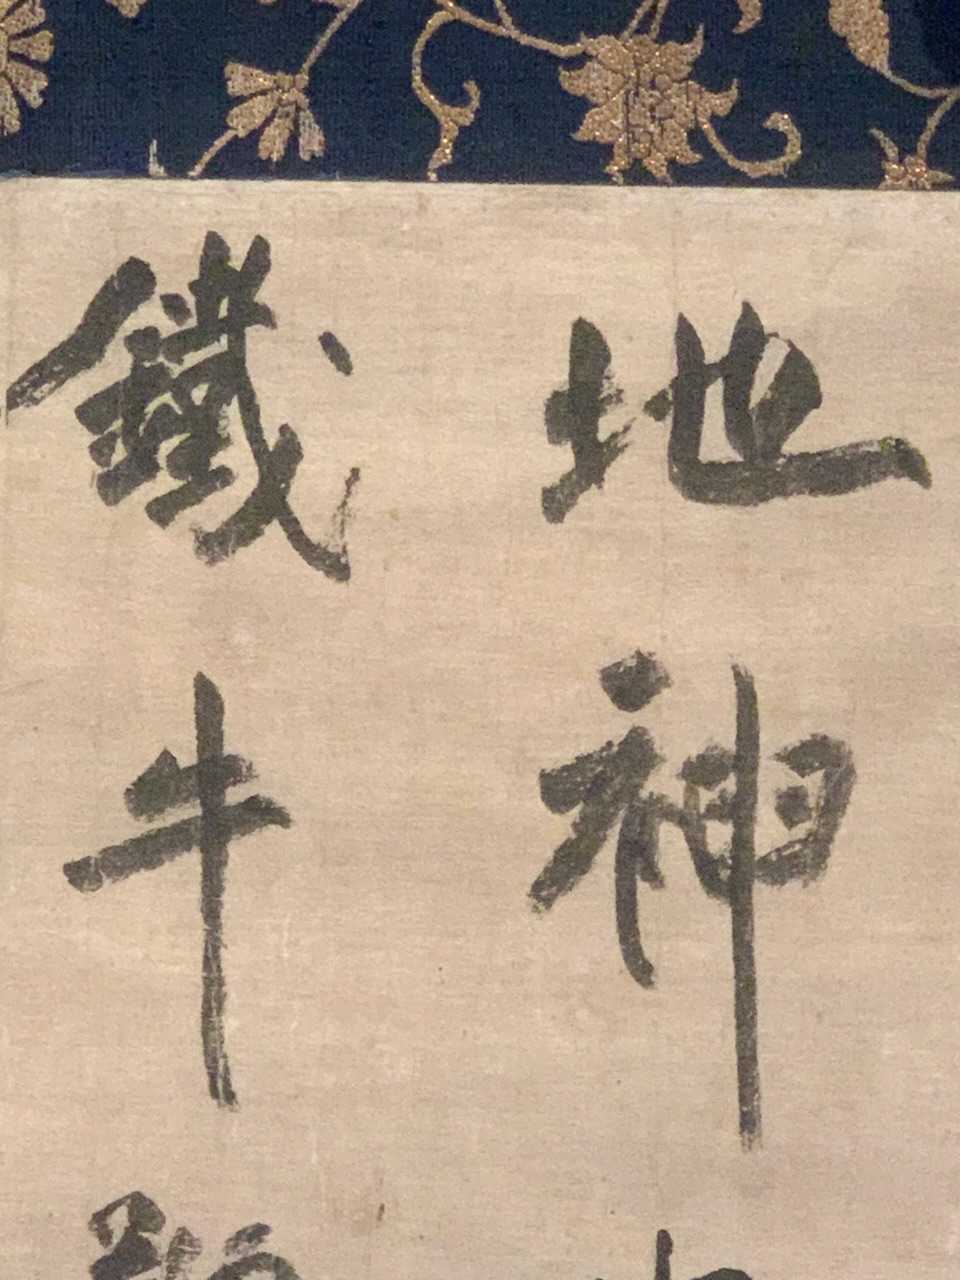 地神
鐵牛